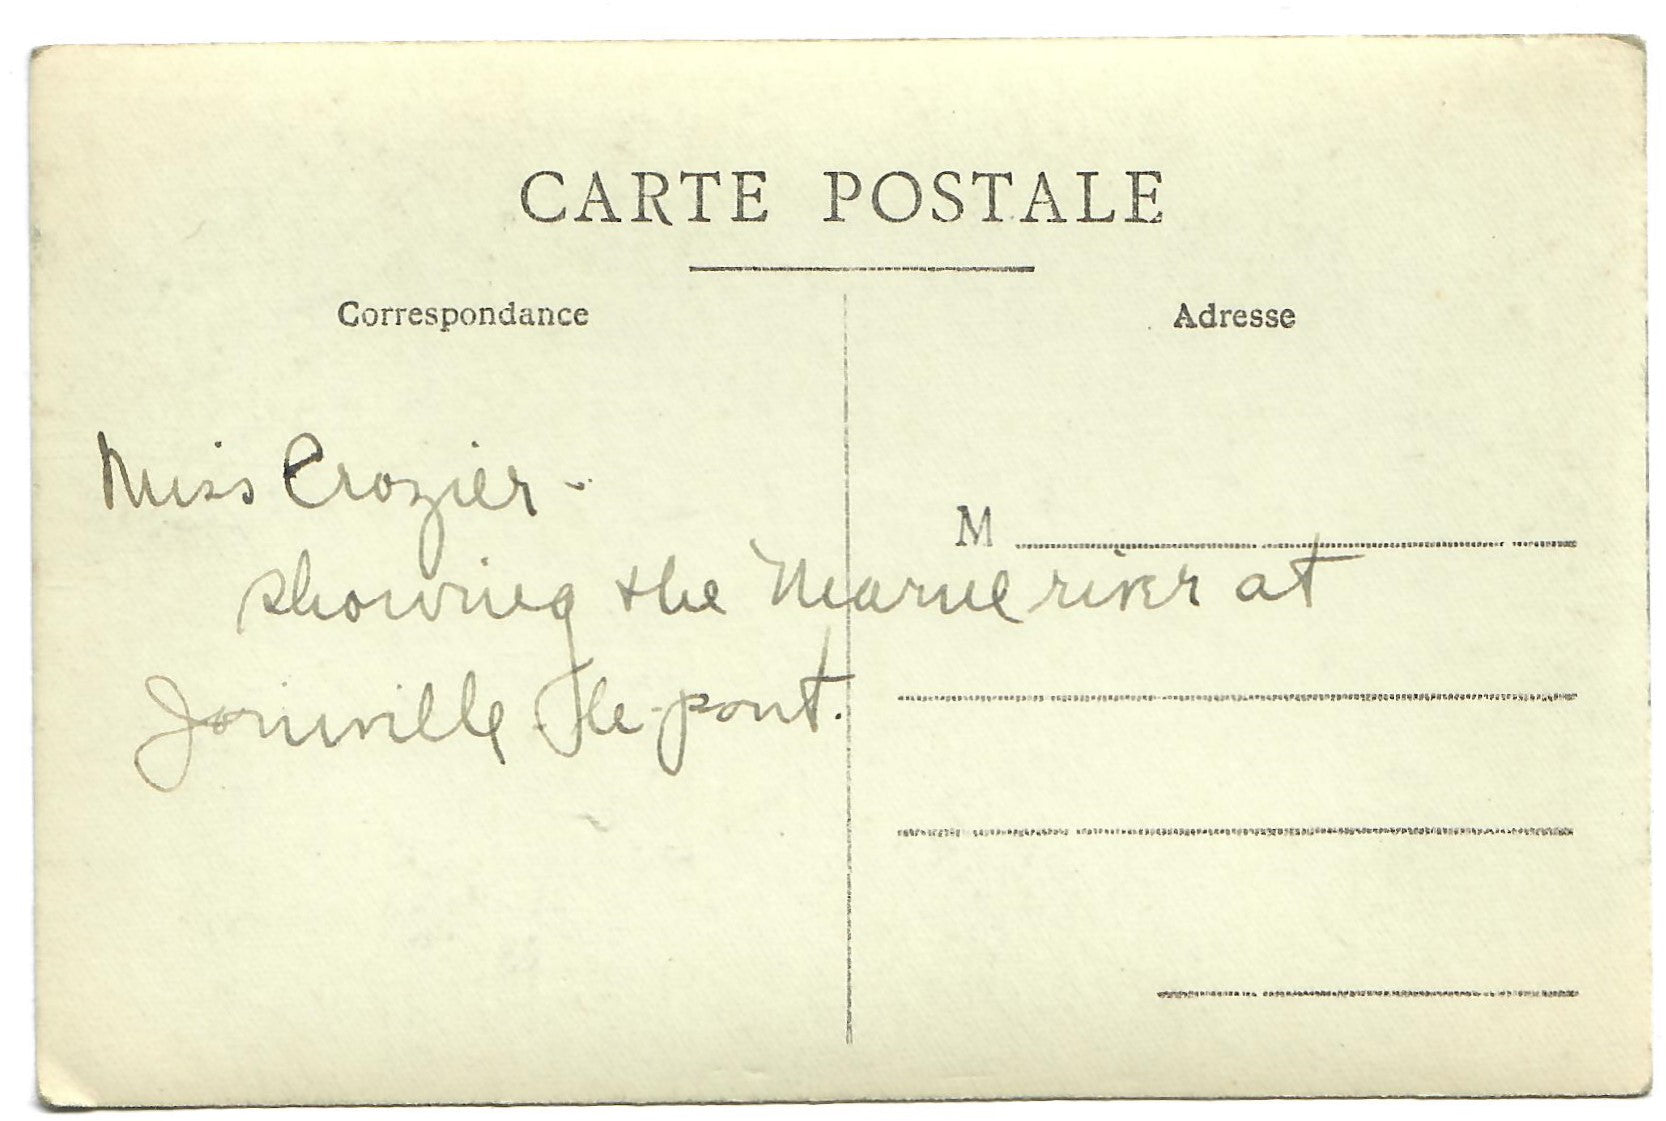 CARTE POSTALE
Correspondance
Adresse
Miss Crozier -
M
showing the Marne river at
Joinville-le-pont.